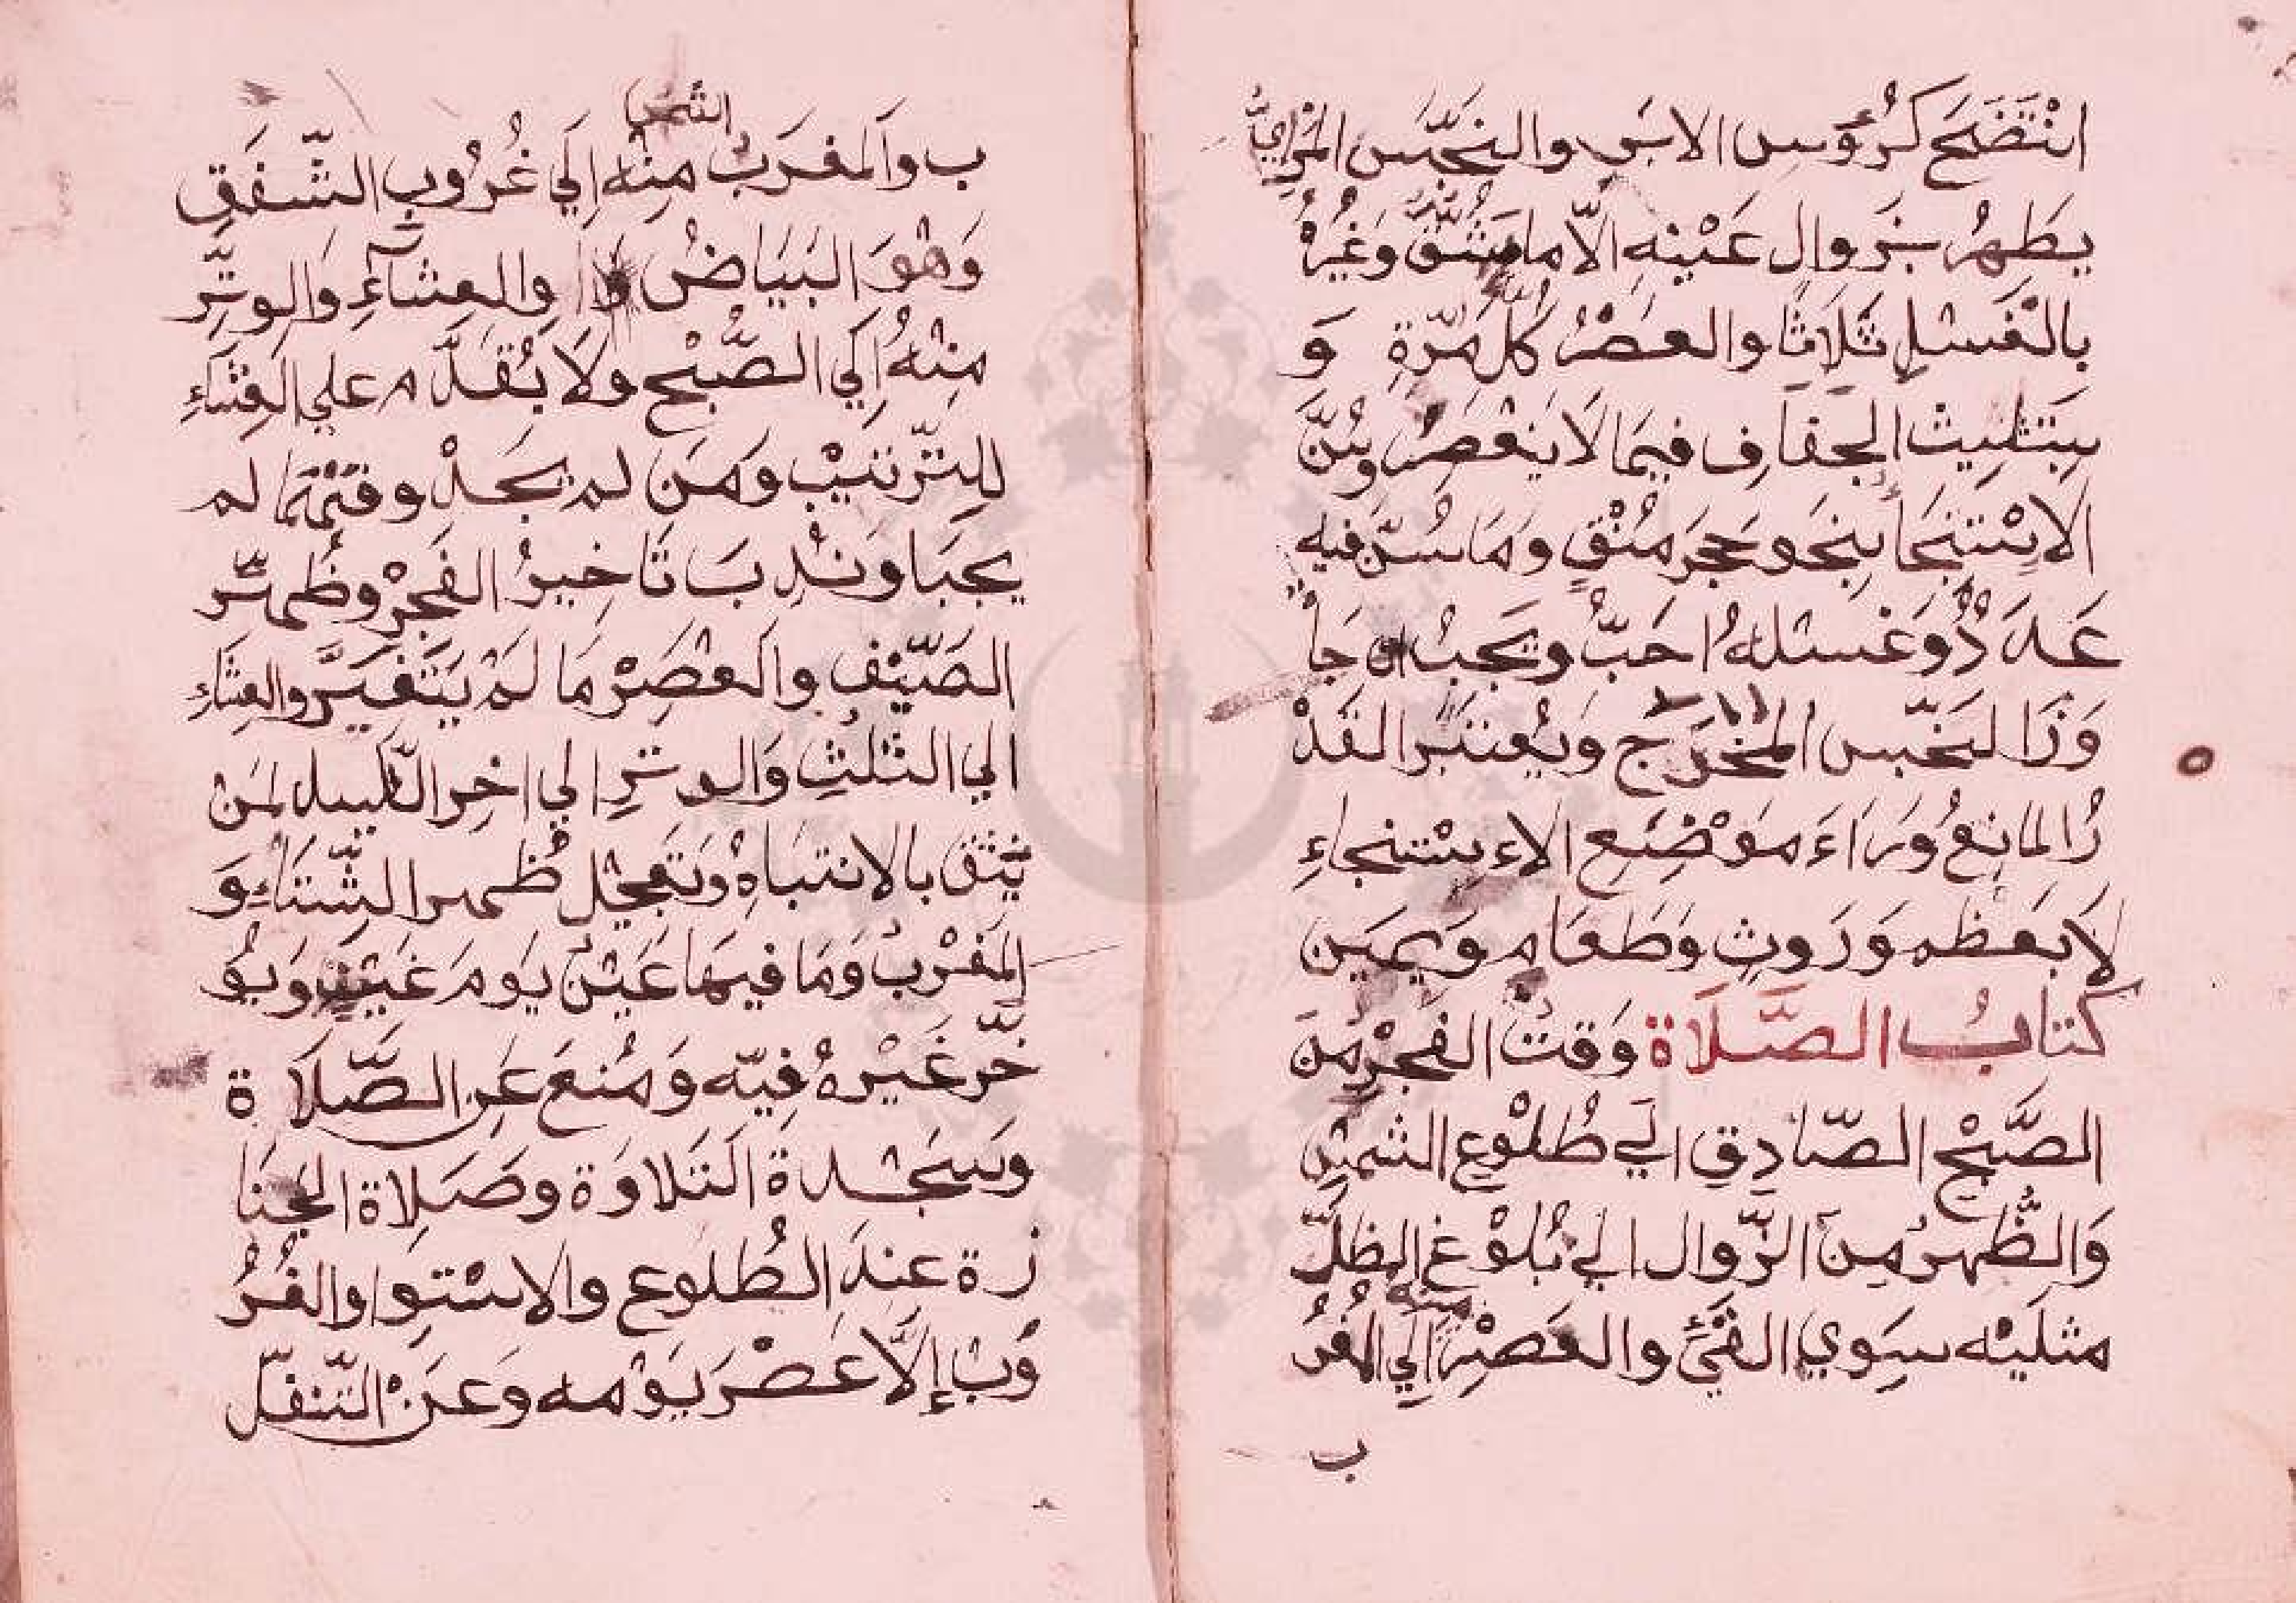 انْتَضَحَ كَرُؤُسِ الابَرِ والنَّجَسُ المَرْاِيُّ
يطَهِرُ بِزَوالِ عَيْنِهِ الاّ ما يَشُقُّ وَغَيْرُ
بالْغَسْلِ ثَلَاثًا والعَصْرُ كُلَّ مَرّةٍ وَ
بِبَتَثْلِيثْ الجَفَافِ فيمَا لَا يَنْعَصِرُ وسُنَّ
الاِسْتَنجَا بِنَحوِ حَجَرَ مُنْقٍ وَمَا سُنَّ فيه
عَدَدٌ وَغَسْلهُ احَبُّ وَيَجَبُ ان جَا
وَزَا لنَّجَسُ المَخْرَج وَيُعْتَبَر القَدْ
رُ المانِعُ وَرَاءَ مَوْضِعِ الاءِسْتنجاءِ
لَا بَعَظم وَرَوثٍ وَطَعَام وَيمَين
كتابُ الصَّلَاة وَقتُ الفَجْرِ مِنَ
الصَّبْحِ الصّادِقِ الَي طُلُوْعِ الشمْسِ
وَالظُّهرُ مِنَ الزّوال الي بُلُوْغ الظلّ
مثلَيْه سِوَي الفَيْءِ والعَصْرُ منه اِلَي المُغرُ
ب
الشمس
ب والمغرَبُ مِنْه اِلَي غُرُوبِ الشّفَقِ
وَهْوَ البَيَاضُ والعِشَآءِ وَالوِتِّرِ
مِنْهُ اِلَي الصُّبْح ولَا يُقَدَّم علي العِشَاءِ
للِتّرتيْبِ وَمَن لم يَجدْ وقتَهْمَا لم
يجبَا وَنُدِبَ تَاخِيرُ الفَجْرِ وظُهرّ
الصَيّفِ والعْصَرْ مَا لَمْ يَتَغيَّر والعِشَاءِ
الي الثلثِ وَالوترِ الي اخِر اللّيل لمَنْ
يّثق بالانتبَاهِ وَتَعجْيل ظُهر الشّتَاءِ وَ
المَغْرِبُ وَمَا فيهَا عَيْنٌ يَومَ غَيْمٍ وَيُؤَ
خَّر غَيْرهُ فِيّه وَمُنعَ عَنِ الصَّلَاة
وسَجْدة التَلاوَة وصَلاة الجَنَا
زة عندَ الطُلوع والاسْتوا والغُرُ
وْبِ إلَّا عَصْرَ يَوْمه وَعَنْ التّنفّل